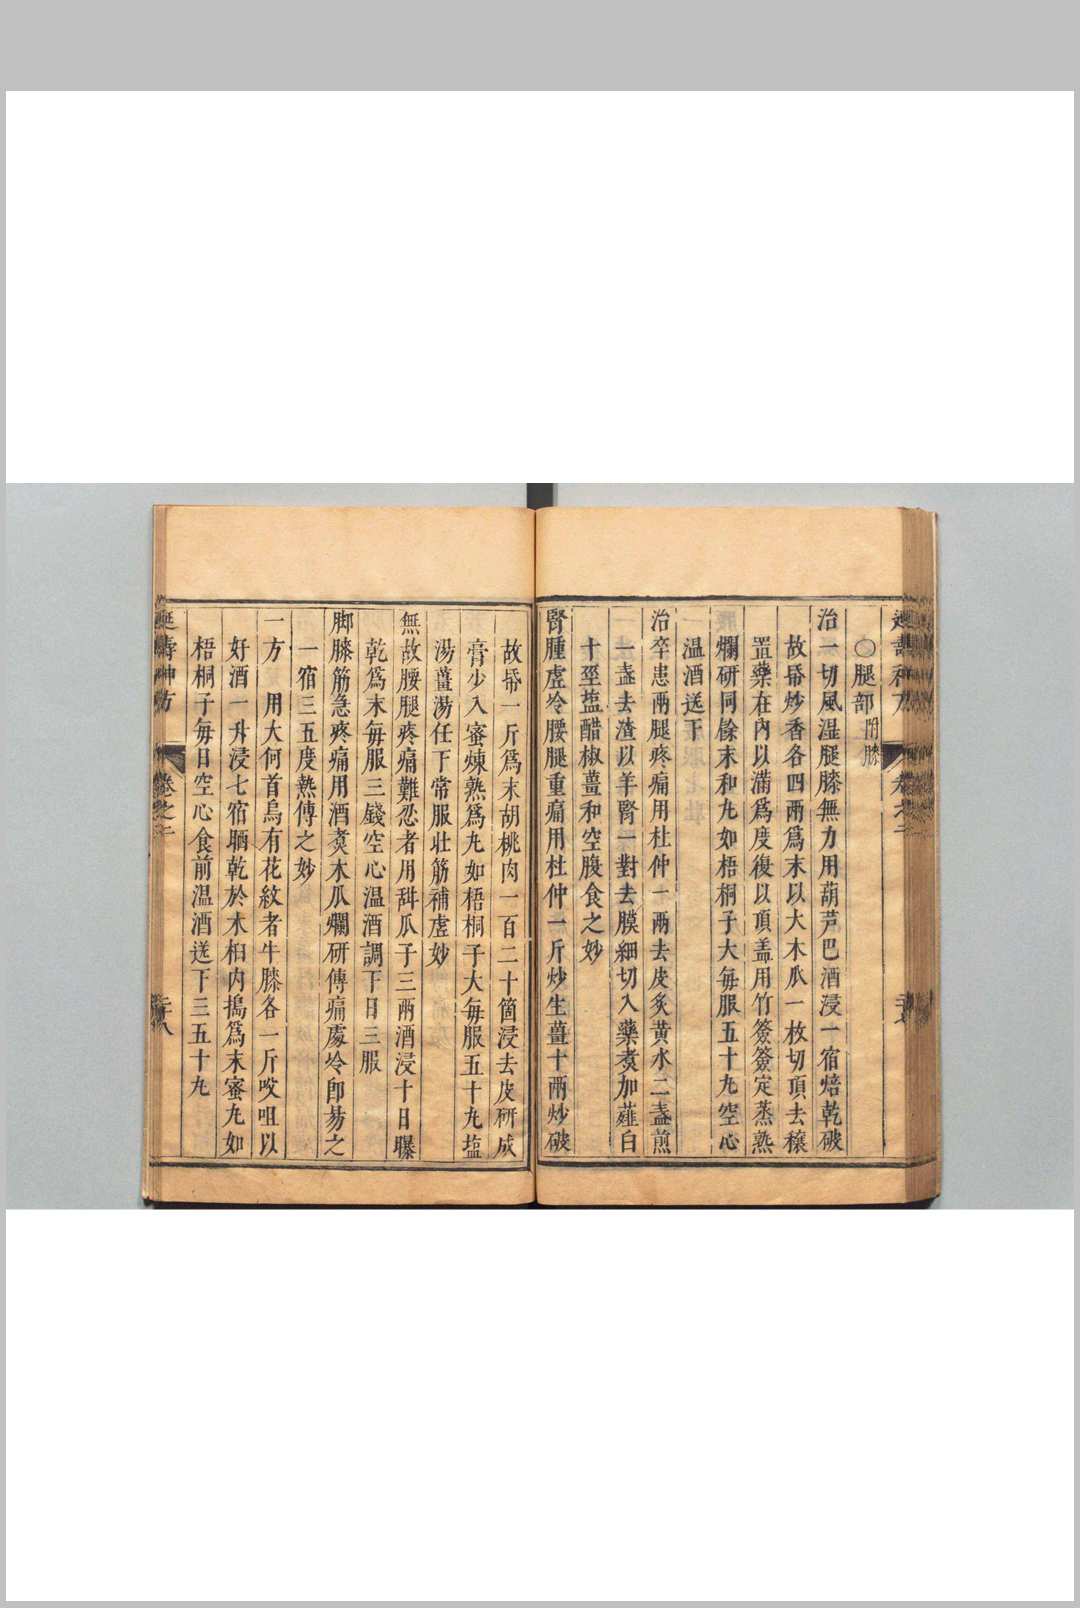 延壽神方 卷之二
○腿部附膝
治一切風濕腿膝無力用葫芦巴酒浸一宿焙乾破
故𥿄炒香各四兩爲末以大木瓜一枚切頂去穰
置藥在內以滿爲度復以頂盖用竹簽簽定蒸熟
爛研同餘末和丸如梧桐子大每服五十丸空心
温酒送下
治卒患兩腿疼痛用杜仲一兩去皮炙黄水二盞煎
一盞去渣以羊腎一對去膜細切入藥煑加薤白
十莖塩醋椒薑和空腹食之妙
腎腫虛冷腰腿重痛用杜仲一斤炒生薑十兩炒破
故𥿄一斤爲末胡桃肉一百二十箇浸去皮研成
膏少入蜜煉熟爲丸如梧桐子大每服五十丸塩
湯薑湯任下常服壯筋補虛妙
無故腰腿疼痛難忍者用甜瓜子三兩酒浸十日曝
乾爲末每服三錢空心温酒調下日三服
脚膝筋急疼痛用酒煑木瓜爛研傅痛處冷即易之
一宿三五度熱傅之妙
一方 用大何首烏有花紋者牛膝各一斤㕮咀以
好酒一升浸七宿晒乾於木臼内搗爲末蜜丸如
梧桐子每日空心食前温酒送下三五十丸
延壽神方 卷之二 二十八